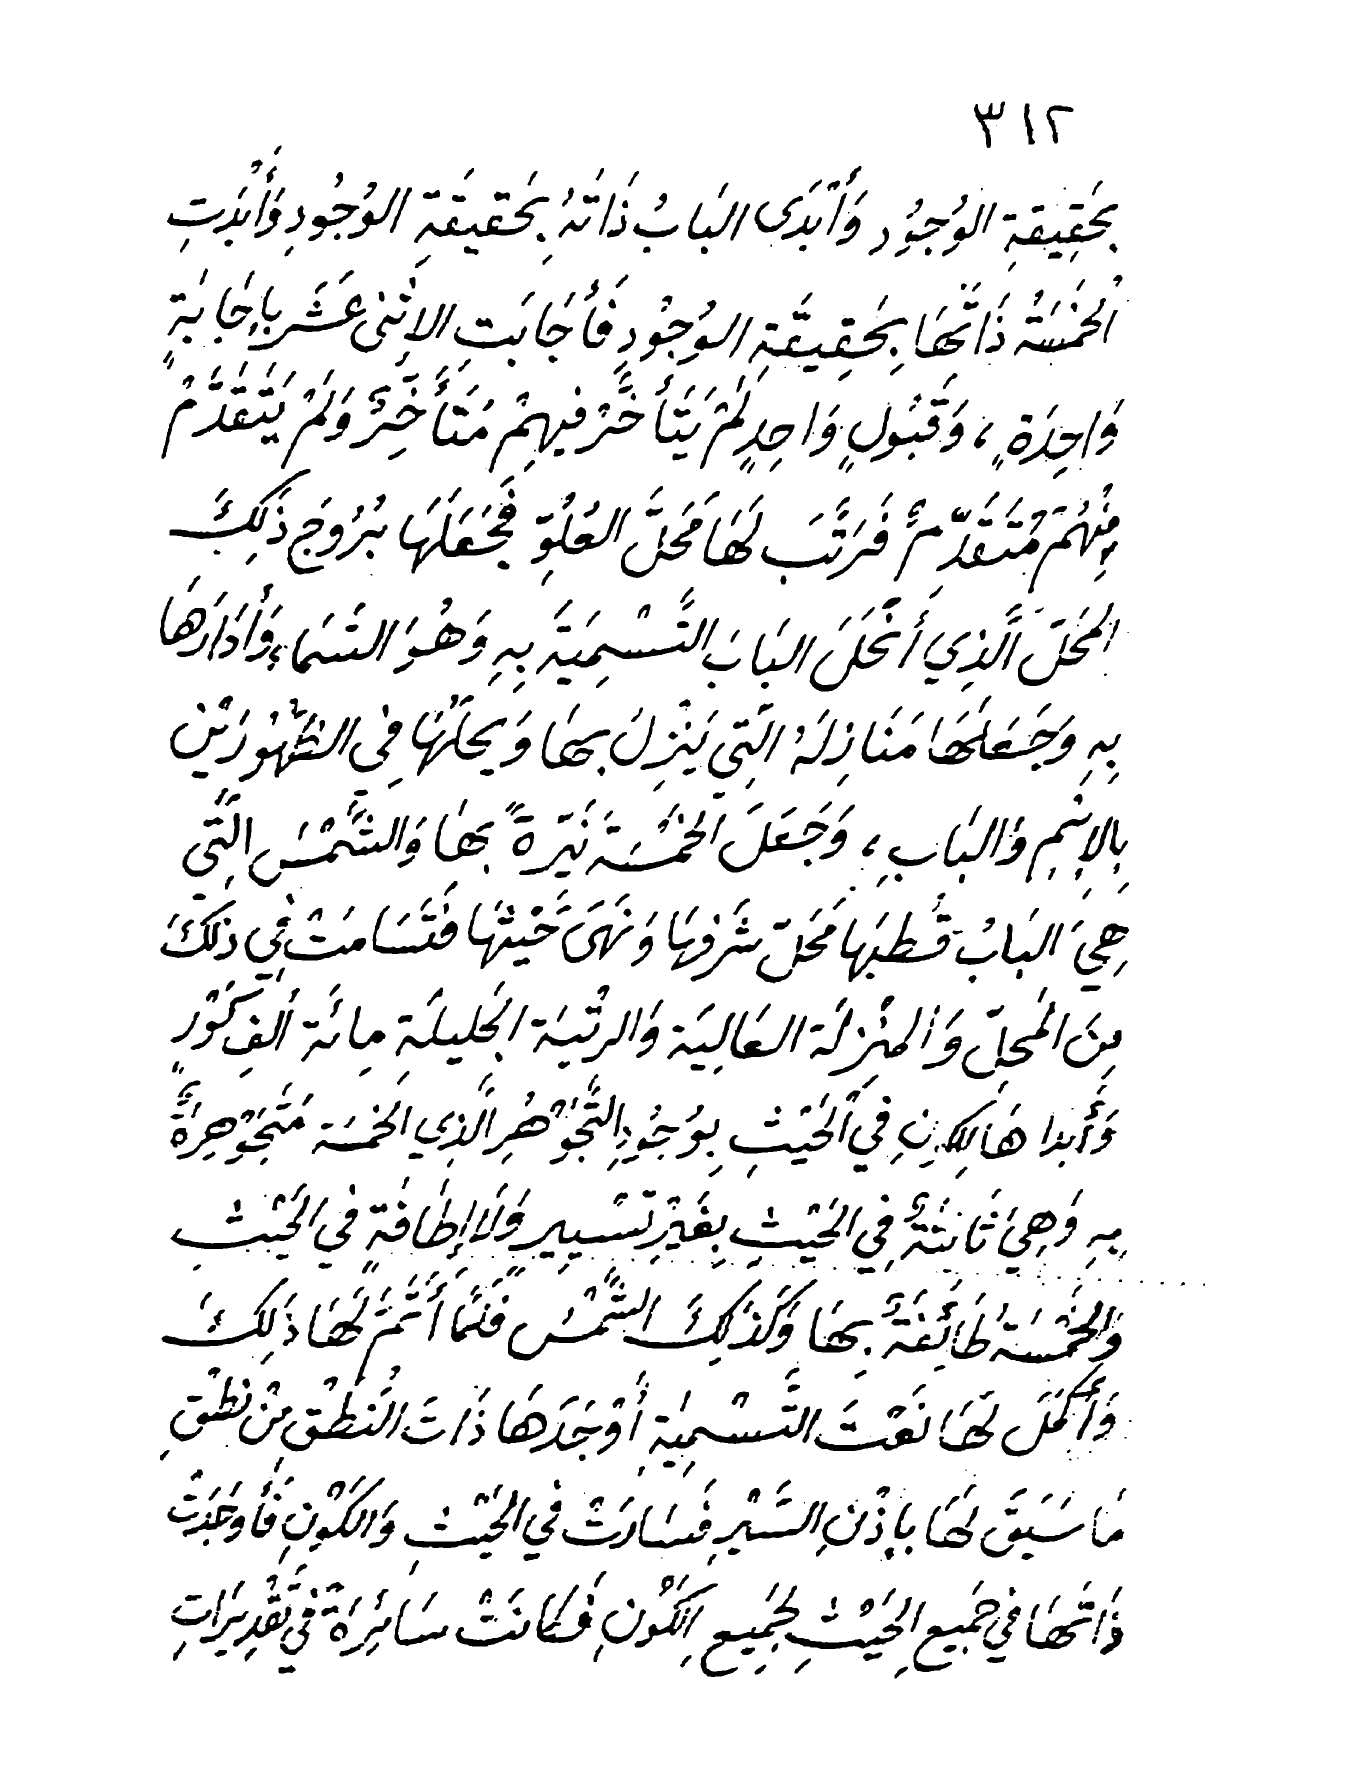 ٣١٢
بِحَقِيقَةِ الوُجُودِ وَأَبْدَى البَابُ ذَاتَهُ بِحَقيقَةِ الوُجُودِ وَأَبْدَتِ
الخَمْسَةُ ذَاتَهَا بِحَقِيقَةِ الوُجُودِ فَأَجَابَتِ الاثْنى عَشَر بِإِجَابَةٍ
وَاحِدَةٍ ، وَقَبُولٍ وَاحِدٍ لَمْ يَتَأَخَّرْ فيهِمْ مُتَأَخِّرٌ وَلَمْ يَتَقَدَّمْ
مِنْهُمْ مُتَقَدِّمٌ فَرَتَّبَ لَهَا مَحَلَّ العُلُوِّ فَجَعَلَهَا بُرُوجَ ذَلِكَ
المَحَلّ الَّذِي أَنْحَلَ البَابَ التَّسْمِيَةَ بِهِ وَهُوَ السَّمَاءِ وَأَدَارَهَا
بِهِ وَجَعَلَهَا مَنَازِلَهُ الَّتِي يَنْزِلُ بِهَا وَيحلّهَا فِي الظُّهُورَيْنِ
بِالإِسْمِ وَالبَابِ ، وَجَعَلَ الخَمْسَةَ نَيِّرَةً بِهَا وَالشَّمْسَ الَّتِي
هِيَ البَابُ قُطبَهَا مَحَلّ شَرَفِهَا وَنَهَى حَيْثَهَا فَتَسَامَتْ فِي ذلكَ
مِنَ المَحلِّ وَالمنْزِلَة العَالِيَة وَالرتْبَة الجَليلَةِ مِائة ألفِ كَوْرٍ
وَأَبداهَا لِلكَونِ فِي الحَيْثِ بِوُجُودِ التَّجَوْهُرِ الَّذِي الخَمسَة مُتَجَوْهِرَةٌ
بِهِ وَهِيَ ثَابتَةٌ فِي الحَيْثِ بِغَيْرِ تَسْيِيرٍ وَلَا إِطَافَةٍ فِي الحَيْثِ
وَالخَمْسَة طَائِفَةٌ بِهَا وَكَذَلِكَ الشَّمْسُ فَلَمَّا أَتَمَّ لَهَا ذَلِكَ
وَأَكْمَلَ لَهَا نَعْتَ التَّسْمِيَةِ أَوْجَدَهَا ذَاتَ النّطْقِ مِنْ نطْقِ
مَا سَبَقَ لَهَا بِإِذْنِ السَّيْرِ فَسَارَتْ فِي الحَيْثِ وَالكَوْنِ فَأَوجَدَتْ
ذَاتَهَا فِي جَمِيعِ الحَيْثِ لِجَمِيعِ الكَوْنِ فَكَانَتْ سَائِرَةً فِي تَقْدِيرَاتِ